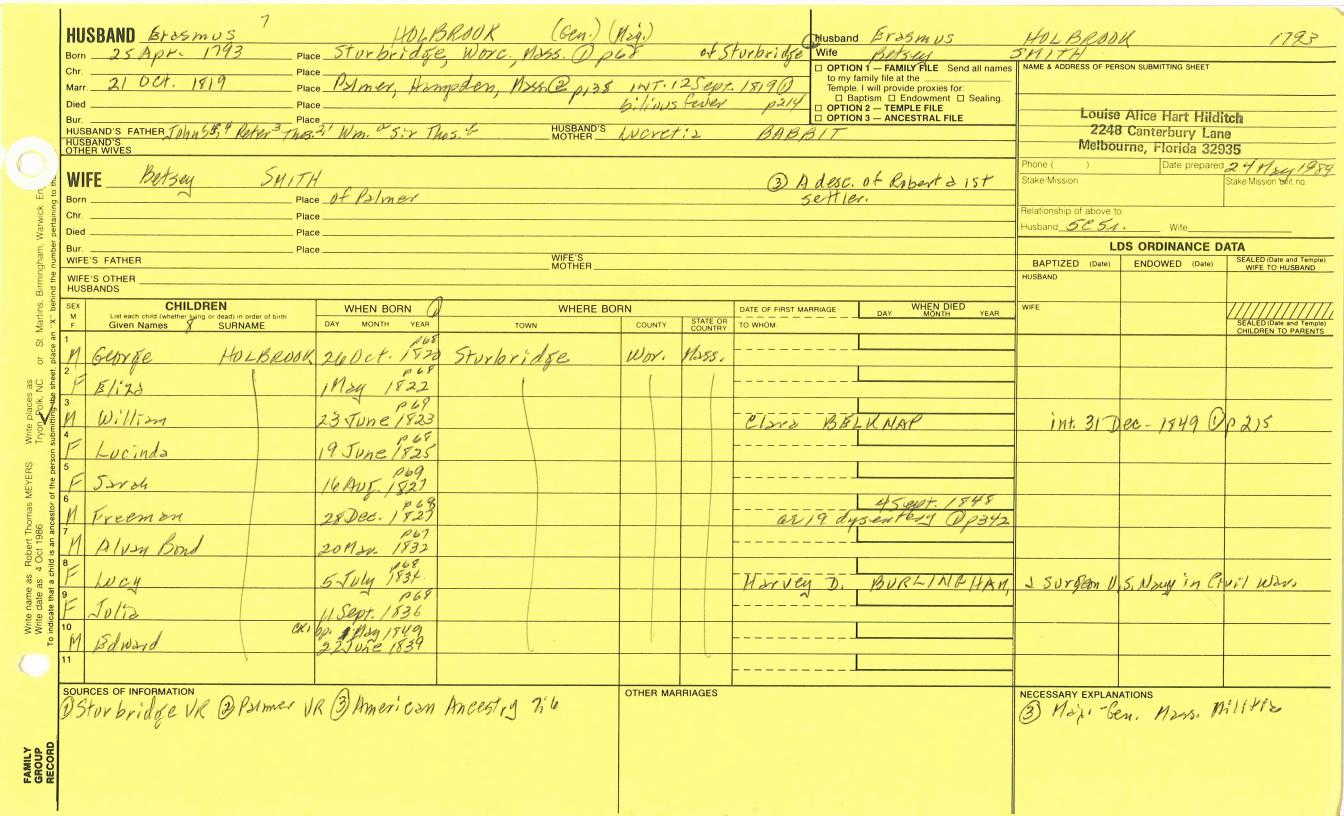 7
HUSBAND Erasmus HOLBROOK (Gen.) (Maj.)
Born 25 Apr. 1793 Place Sturbridge, Worc, Mass. ① p68 of Sturbridge
Chr. Place
Marr. 21 Oct. 1819 Place Palmer, Hampden, Mass ② p138 INT. 12 Sept. 1819 ①
Died Place bilious fever p214
Bur. Place
HUSBAND'S FATHER John Peter Thos. Wm. Sir Thos. HUSBAND'S MOTHER Lucretia BABBIT
HUSBAND'S OTHER WIVES
Husband Erasmus HOLBROOK 1793
Wife Betsey SMITH
☐ OPTION 1 — FAMILY FILE Send all names
to my family file at the
Temple. I will provide proxies for:
☐ Baptism ☐ Endowment ☐ Sealing.
☐ OPTION 2 — TEMPLE FILE
☐ OPTION 3 — ANCESTRAL FILE
NAME & ADDRESS OF PERSON SUBMITTING SHEET
Louise Alice Hart Hilditch
2248 Canterbury Lane
Melbourne, Florida 32935
Phone ( ) Date prepared 24 May 1989
Stake/Mission Stake/Mission unit no.
Relationship of above to:
Husband 5C5r. Wife
WIFE Betsey SMITH ③ A desc. of Robert a 1st
settler.
Born Place of Palmer
Chr. Place
Died Place
Bur. Place
WIFE'S FATHER WIFE'S MOTHER
WIFE'S OTHER HUSBANDS
LDS ORDINANCE DATA
BAPTIZED (Date) ENDOWED (Date) SEALED (Date and Temple) WIFE TO HUSBAND
HUSBAND
WIFE
SEALED (Date and Temple) CHILDREN TO PARENTS
SEX M F CHILDREN WHEN BORN ① WHERE BORN DATE OF FIRST MARRIAGE WHEN DIED
List each child (whether living or dead) in order of birth
Given Names SURNAME DAY MONTH YEAR TOWN COUNTY STATE OR COUNTRY TO WHOM DAY MONTH YEAR
1 M George HOLBROOK 26 Oct. 1820 p68 Sturbridge Wor. Mass.
2 F Eliza 1 May 1822 p68
3 M William 23 June 1823 p69 Clara BELKNAP int. 31 Dec. 1849 ① p215
4 F Lucinda 19 June 1825 p68
5 F Sarah 16 Aug. 1827 p69
6 M Freeman 28 Dec. p68 4 Sept. 1848
ae 19 dysentery ① p342
7 M Alvan Bond 20 Mar. 1832 p67
8 F Lucy 5 July 1834 p68 Harvey D. BURLINGHAM, a surgeon U.S. Navy in Civil War.
9 F Julia 11 Sept. 1836 p68
10 M Edward bp. May 1849
22 June 1839
11
SOURCES OF INFORMATION
① Sturbridge VR ② Palmer VR ③ American Ancestry
OTHER MARRIAGES
NECESSARY EXPLANATIONS
③ Maj.-Gen. Mass. Militia
Write name as: Robert Thomas MEYERS Write places as: Tryon, Polk, NC or St. Martins, Birmingham, Warwick,
Write date as: 4 Oct 1986
To indicate that a child is an ancestor of the person submitting the sheet, place an "X" behind the number pertaining to
FAMILY
GROUP
RECORD